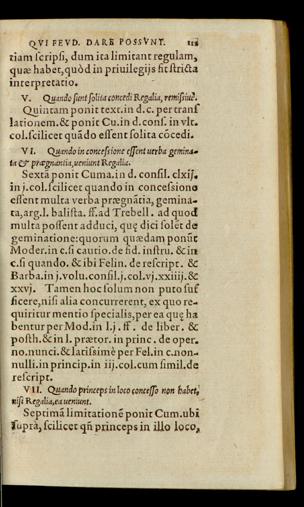 QVI FEVD. DARE POSSVNT. 112
tiam scripsi, dum ita limitant regulam,
quæ habet, quòd in priuilegijs fit stricta
interpretatio.
V. Quando sunt solita concedi Regalia, remissiuè.
Quintam ponit text. in d. c. per trans
lationem. & ponit Cu. in d. cons. in vlt.
col. scilicet quãdo essent solita cõcedi.
VI. Quando in concessione essent verba gemina-
ta & prægnantia, veniunt Regalia.
Sextã ponit Cuma. in d. consil. clxij.
in j. col. scilicet quando in concessione
essent multa verba prægnãtia, gemina-
ta, arg. l. balista. ff. ad Trebell. ad quod
multa possent adduci, quę dici solẽt de
geminatione: quorum quædam ponũt
Moder. in c. si cautio. de fid. instru. & in
c. si quando. & ibi Felin. de rescript. &
Barba. in j. volu. consil. j. col. vj. xxiiij. &
xxvj. Tamen hoc solum non puto suf
ficere, nisi alia concurrerent, ex quo re-
quiritur mentio specialis, per ea quę ha
bentur per Mod. in l. j. ff. de liber. &
posth. & in l. prætor. in princ. de oper.
no. nunc. & latissimè per Fel. in c. non-
nulli. in princip. in iij. col. cum simil. de
rescript.
VII. Quando princeps in loco concesso non habet,
nisi Regalia, ea veniunt.
Septimã limitationẽ ponit Cum. ubi
suprà, scilicet qñ princeps in illo loco,